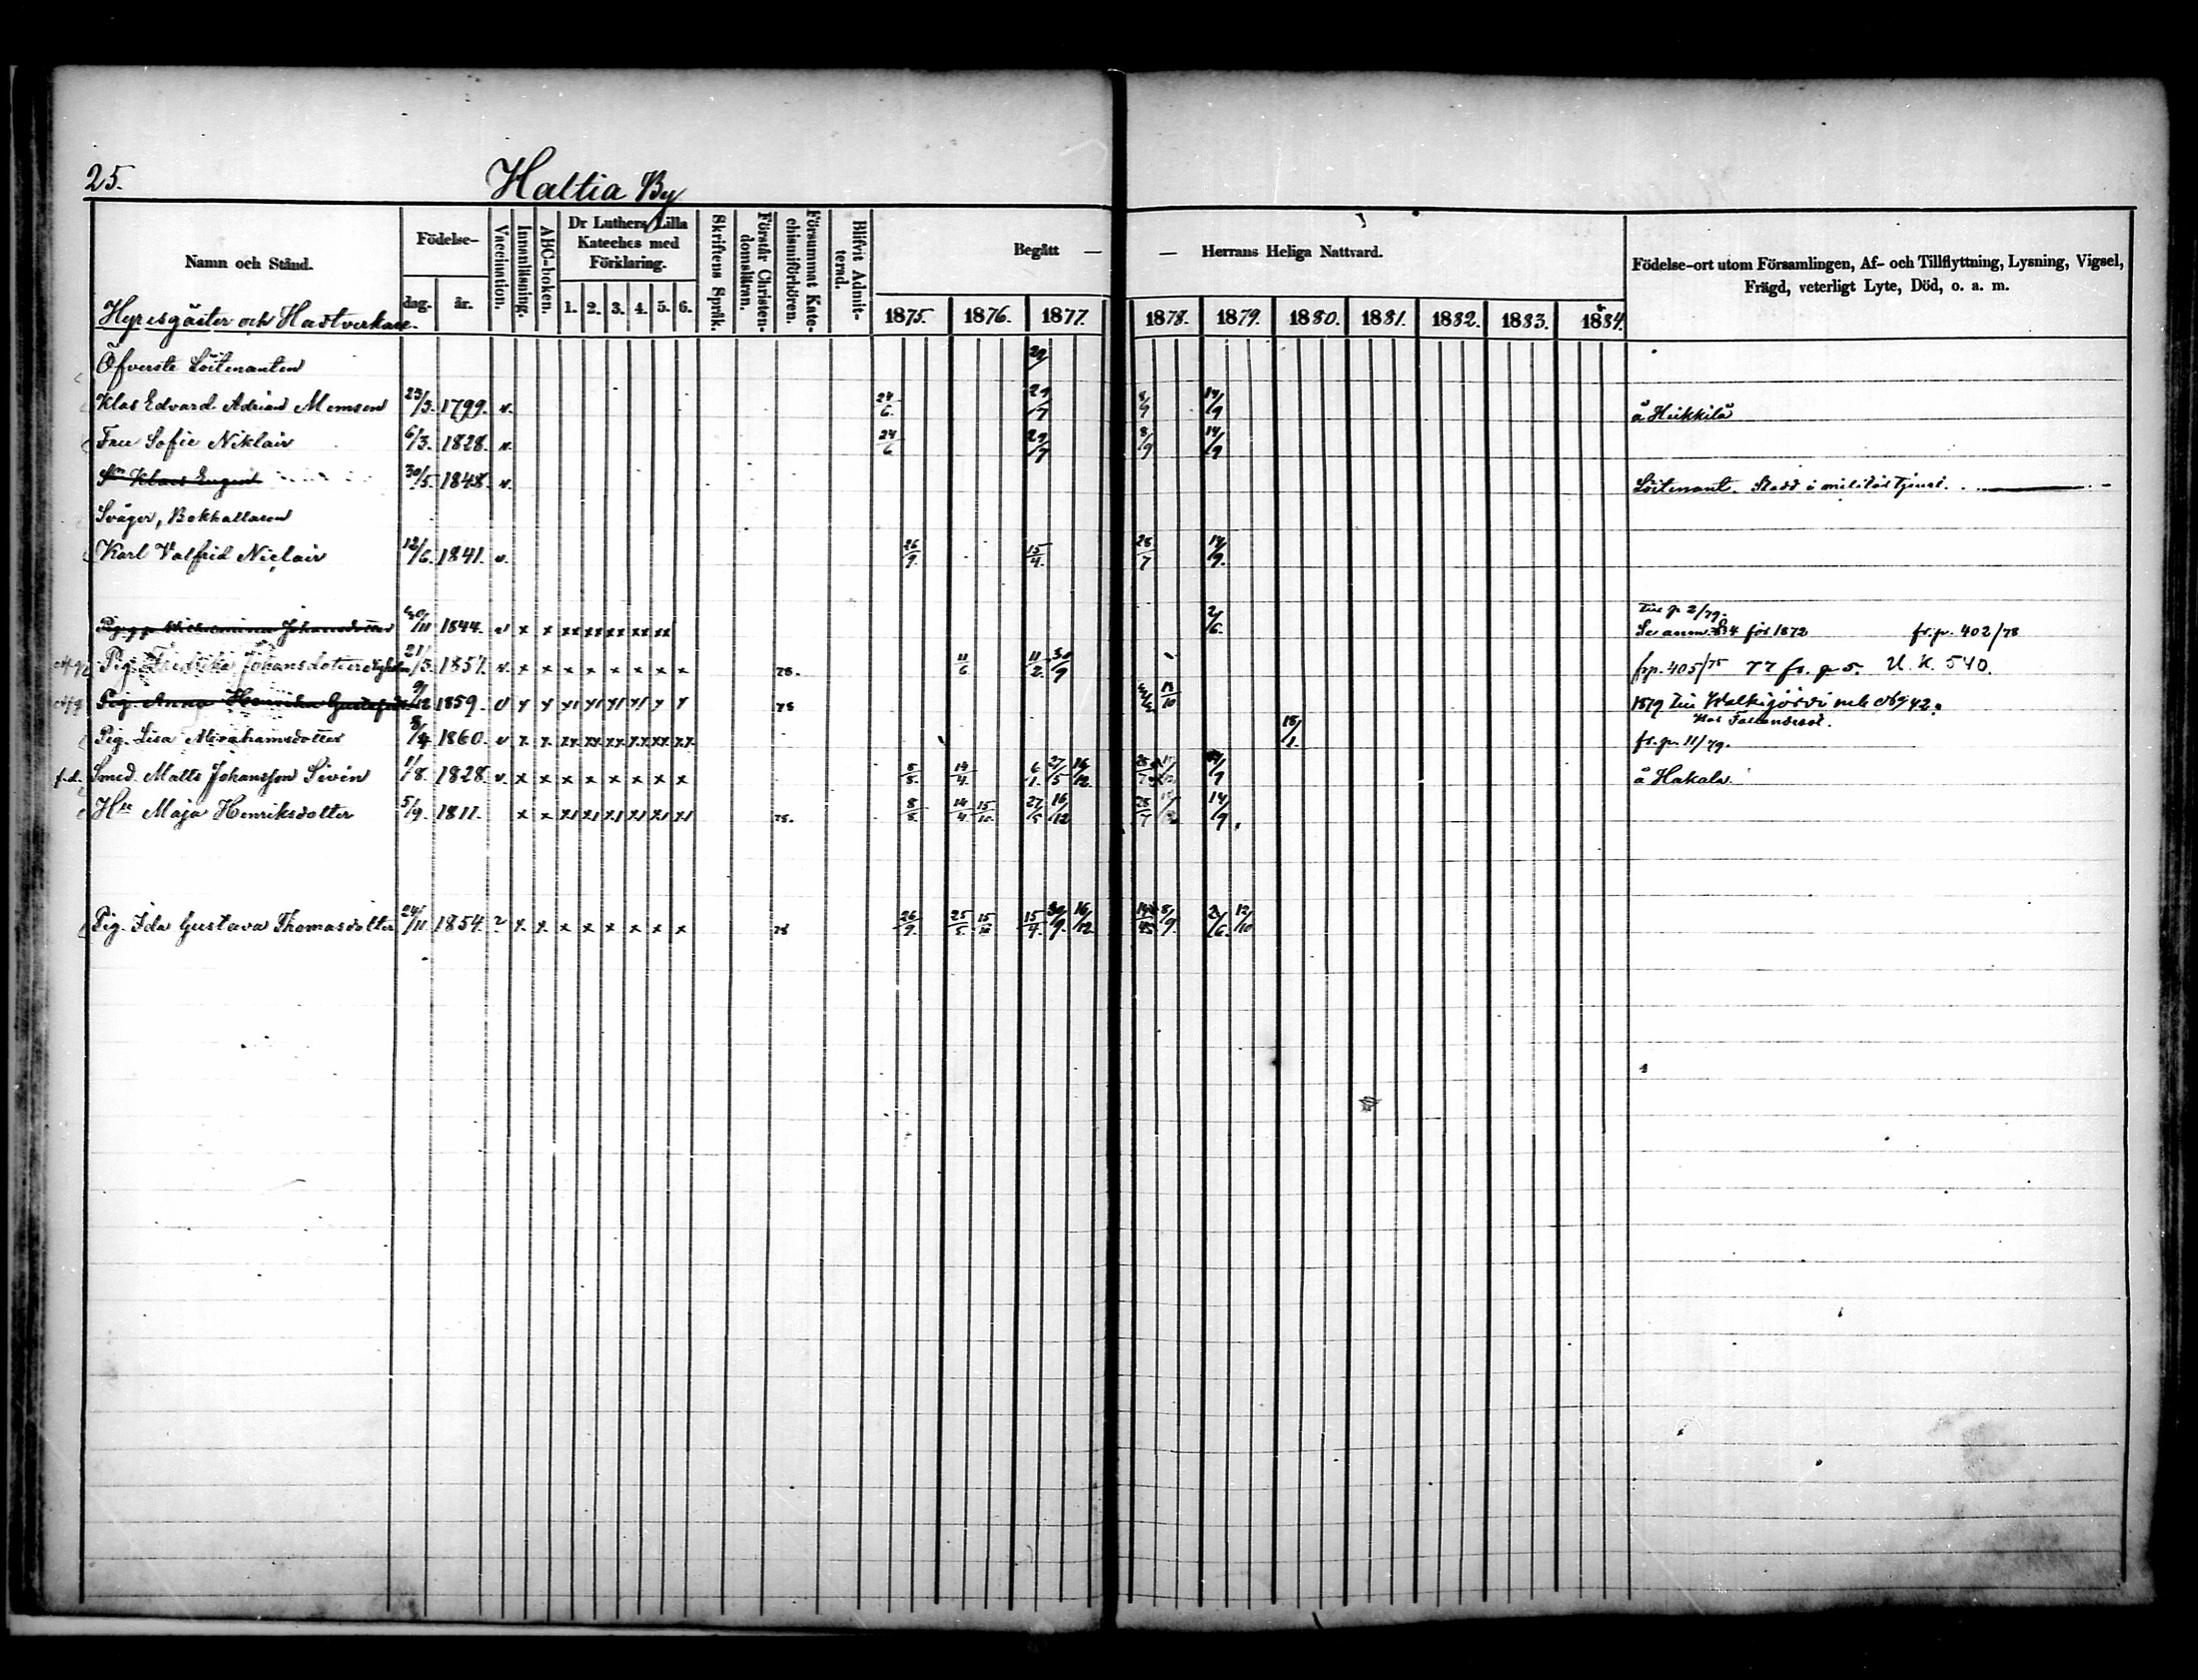 25.
Haltia By
Namn och Stånd.
Födelse-
dag.
år.
Vaccination.
Innanläsning.
ABC-boken.
Dr Luthers Lilla
Kateches med
Förklaring.
1. 2. 3. 4. 5. 6.
Skriftens Språk.
Förstår Christen-
domsläran.
Försummat Kate-
chismiförhören.
Blifvit Admit-
terad.
Begått — — Herrans Heliga Nattvard.
1875. 1876. 1877. 1878. 1879. 1880. 1881. 1882. 1883. 1884.
Födelse-ort utom Församlingen, Af- och Tillflyttning, Lysning, Vigsel,
Frägd, veterligt Lyte, Död, o. a. m.
Hyresgäster och Hadtverkare.
Öfverste Löitenanten
Klas Edvard Adrian Memsen 23/3. 1799. v. 24/6. 29/7 8/9 14/9 å Heikkilä
Fru Sofie Niklair 6/3. 1828. v. 24/6 29/7 8/9 14/9
Sn Klaes Eugen 30/5. 1848. v. Löitenant. Stadd i militär tjenst.
Svåger, Bokhallaren
Karl Valfrid Niclair 12/6. 1841. v. 26/9. 15/4. 28/7 14/9.
Johansdotter /11 1844. v x x xx xx xx xx xx xx 2/6. till p. 2/79.
Se anm. för 1872 fr. p. 402/78
Pig. Fredrika Johansdotter 21/3. 1857. v. x x x x x x x x 78. 11/6 11/2. 30/9 frp. 405/75 77 fr. p 5. U. K. 540.
Pig. Anna Henrika 9/12 1859. 78 13/10 1879 till Walkijärvi
Pig. Lisa Abrahamsdotter 8/4 1860. v x x xx xx xx xx xx xx 18/1. fr. p. 11/79.
f.d. Smed. Matts Johansson Sivén 1/8. 1828. v. x x x x x x x x 14/4. 6/1. 27/5 16/12 å Hakala.
Hu Maja Henriksdotter 5/9. 1811. x x 78. 14/4 15/10. 27/5 16/12 28/7 14/9.
Pig. Ida Gustava Thomasdotter 24/11 1854. v x x x x x x x x 78 26/9. 25/5. 15/10 15/4. 30/9. 16/12 8/9. 2/6. 12/10